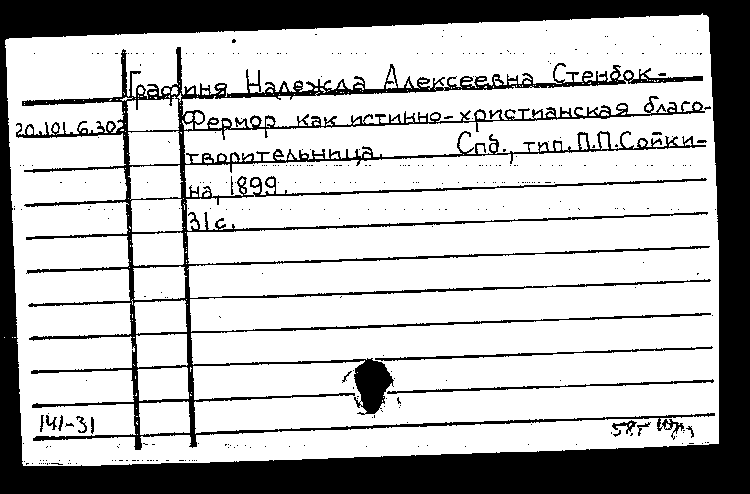 Графиня Надежда Алексеевна Стенбок-
20.101.6.302 Фермор как истинно-христианская благо-
творительница. Спб., тип. П.П.Сойки-
на, 1899.
31 с.
141-31
58г